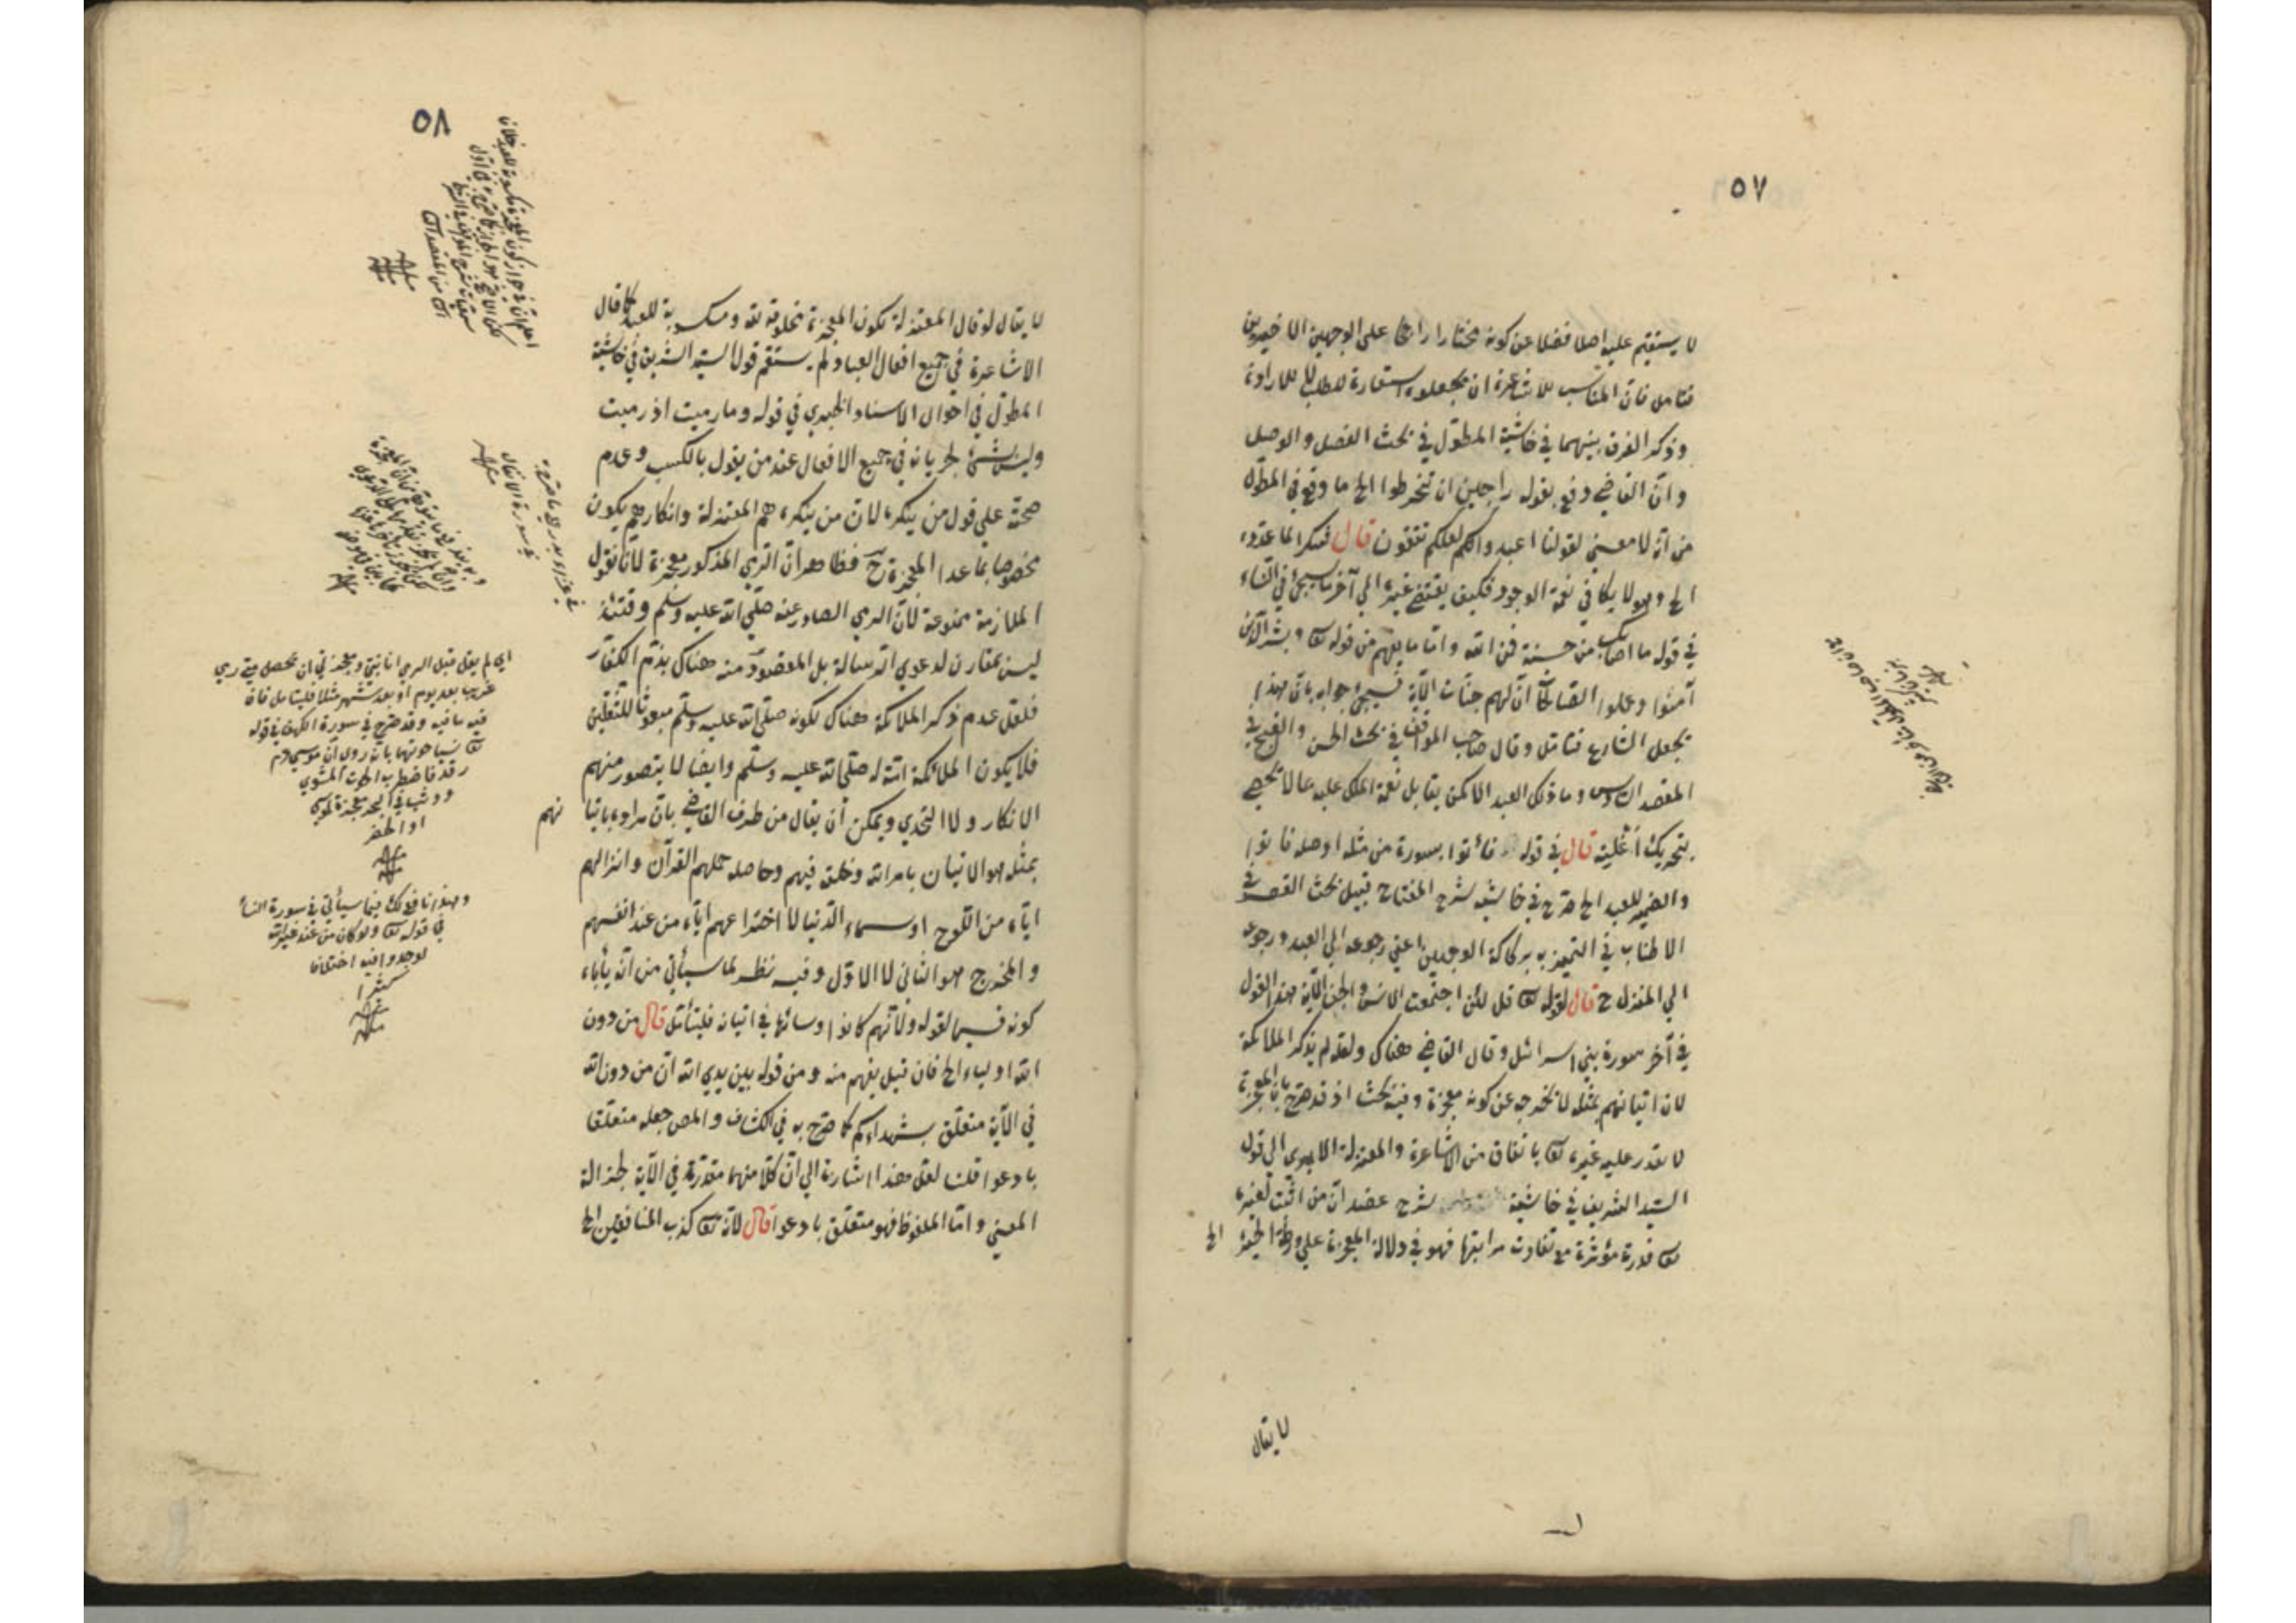 ٥٧
لا يستقيم عليه اصلا فضلا عن كونه مختارا راجحا على الوجهين الاخيرين
فتامل فان المناسب للاشاعرة ان يجعلوه استعارة للطلب لا للارادة
وذكر الفرق بينهما في حاشية المطول في بحث الفصل والوصل
وان القاضي دفع بقوله راجين ان تنخرطوا الخ ما وقع في المطول
من انه لا معنى لقولنا اعبدوا ربكم لعلكم تتقون قال شكرا لما عدده
الخ وهو لا يكافي نعمة الوجود فكيف يقتضي غيره الى آخر ما سيجئ في النساء
في قوله ما اصابك من حسنة فمن الله واما ما يفهم من قوله تعا وبشر الذين
آمنوا وعملوا الصالحات ان لهم جنات الآية فسيجئ جوابه بان هذا
بجعل الشارع فتامل وقال صاحب المواقف في بحث الحسن والقبح في
المقصد السادس وما ذلك العبد الا كمن يقابل نعمة الملك عليه بما لا يحصى
بتحريك أنملته قال في قوله فأتوا بسورة من مثله او صلة فأتوا
والضمير للعبد الخ صرح في حاشية شرح المفتاح قبيل بحث القصر في
الاطناب في التمييز به بركاكة الوجهين اعني رجوعه الى العبد ورجوعه
الى المنزل ح قال لقوله تعا قل لئن اجتمعت الانس والجن الآية هذا القول
في آخر سورة بني اسرائل وقال القاضي هناك ولعله لم يذكر الملائكة
لان اتيانهم بمثله لا يخرجه عن كونه معجزة وفيه بحث اذ قد صرح بان المعجزة
لا يقدر عليه غيره تعا باتفاق من الاشاعرة والمعتزلة الا يرى الى قول
السيد الشريف في حاشية شرح عضد ان من اثبت لغيره
تعا قدرة مؤثرة مع تفاوت مراتبها فهو في دلالة المعجزة على ورطة الحيرة الخ
لا يقال
٥٨
لا يقال لو قال المعتزلة بكون المعجزة مخلوقة لله ومكسوبة للعبد كما قال
الاشاعرة في جميع افعال العباد لم يستقم قول السيد الشريف في حاشية
المطول في احوال الاسناد الخبري في قوله وما رميت اذ رميت
وليس بشئ لجريانه في جميع الافعال عند من يقول بالكسب وعدم
صحته على قول من ينكره لان من ينكره هم المعتزلة وانكارهم يكون
مخصوصا بما عدا المعجزة ح فظاهر ان الرمي المذكور معجزة لأنا نقول
الملازمة ممنوعة لأن الرمي الصادر عنه صلى الله عليه وسلم وقتئذ
ليس بمقارن لدعوى الرسالة بل المقصود منه هناك هزم الكفار
فلعل عدم ذكر الملائكة هناك لكونه صلى الله عليه وسلم مبعوثا للثقلين
فلا يكون الملائكة امة له صلى الله عليه وسلم وايضا لا يتصور منهم
الانكار ولا التحدي ويمكن أن يقال من طرف القاضي بان مراده باتيانهم
بمثله هو الاتيان بامر الله وخلقه فيهم وحاصله حملهم القرآن وانزالهم
اياه من اللوح او سماء الدنيا لا اختراعهم اياه من عند انفسهم
والمخرج هو الثاني لا الاول وفيه نظر لما سيأتي من انه يأباه
كونه قسيما لقوله ولأنهم كانوا وسائط في اتيانه فليتأمل قال من دون
الله اولياء الخ فان قيل يفهم منه ومن قوله بين يدي الله ان من دون الله
في الآية متعلق بشهداءكم كما صرح به في الكشاف والمص جعله متعلقا
بادعوا قلنا لعل هذا اشارة الى ان كلا منهما مقدرة في الآية لجزالة
المعنى واما الملفوظ فهو متعلق بادعوا قال لانه تعا كذب المنافقين الخ
اي لم يقل قبل الرمي انا نبي ومعجزتي ان يحصل مني رمي
غريب بعد يوم او بعد شهر مثلا فليتامل فان
فيه ما فيه وقد صرح في سورة الكهف في قوله
تعا نسيا حوتهما بانه روى ان موسى عم
رقد فاضطرب الحوت المشوي
ووثب في البحر معجزة لموسى
او الخضر
منه
وهذا نافع لك فيما سيأتي في سورة النسا
في قوله تعا ولو كان من عند غير الله
لوجدوا فيه اختلافا
كثيرا
منه